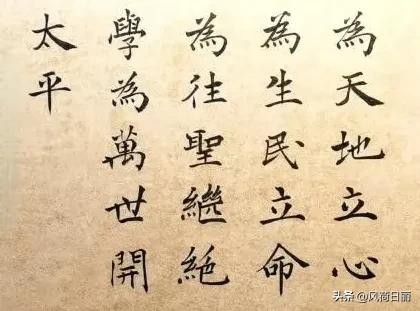 為天地立心
為生民立命
為往聖繼絕
學為萬世開
太平
头条 @风荷日丽